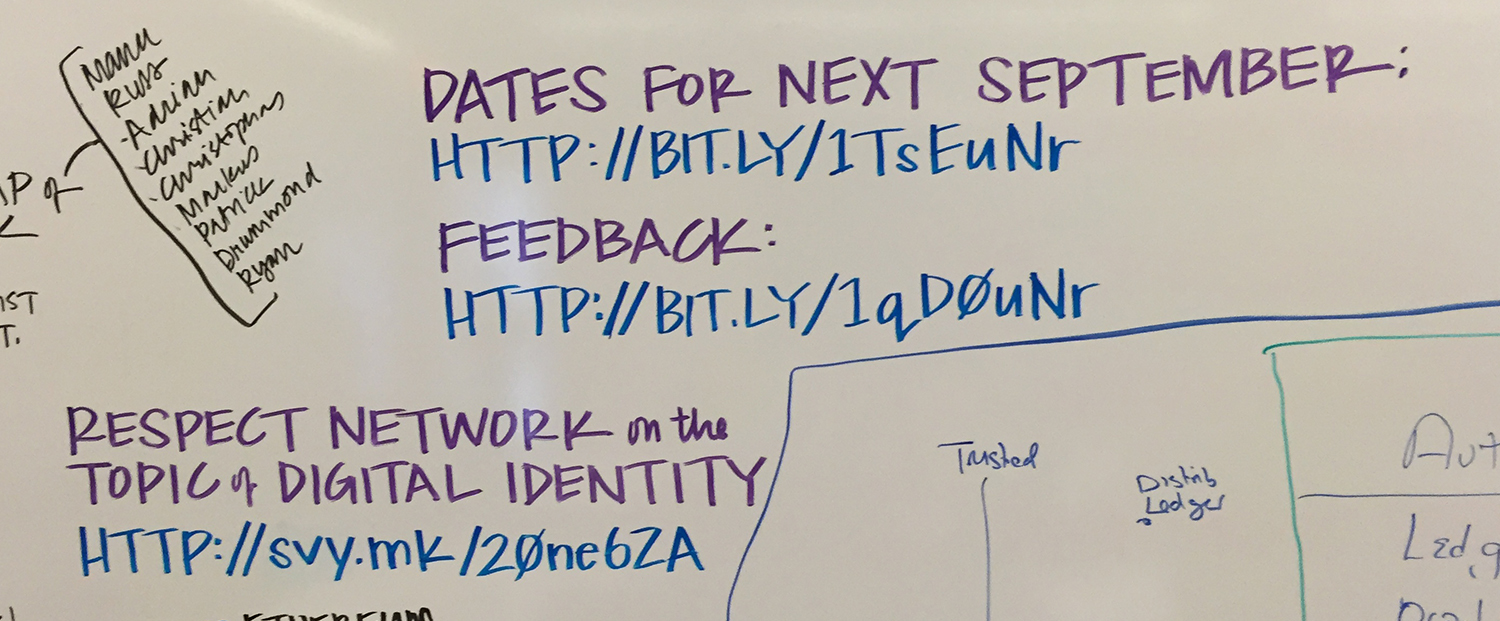 Manu
Russ
- Adrian
- Christian
- Christopher
Markus
Patrick
Drummond
Ryan
IP of
IST
T.
DATES FOR NEXT SEPTEMBER:
HTTP://BIT.LY/1TsEuNr
FEEDBACK:
HTTP://BIT.LY/1qDØuNr
RESPECT NETWORK on the
TOPIC of DIGITAL IDENTITY
HTTP://svy.mk/2Øne6ZA
Trusted
Distrib
Ledger
Aut
Ledg